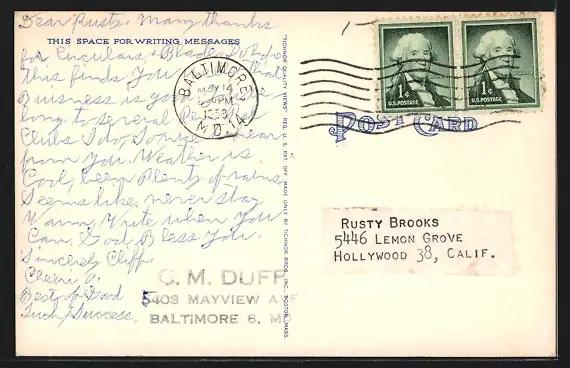 Dear Rusty. Many thanks
THIS SPACE FOR WRITING MESSAGES
for Circulars & Blades. Do Hope
this finds You
Buisness is
long to several
Clubs I do, To
from You. Weather is
Cool, been Plenty of rains,
Seems like, never stay
Warm, Write when you
Can. God Bless You.
Sincerely Cliff.
Cheerio.
Best of Good
Luck, Success,
C. M. DUFF
5403 MAYVIEW AVE
BALTIMORE 6, M
"TICHNOR QUALITY VIEWS" REG. U. S. PAT. OFF. MADE ONLY BY TICHNOR BROS., INC., BOSTON, MASS.
BALTIMORE
MAY 14
PM
1959
MD. 14
1¢
U.S. POSTAGE
1¢
U.S. POSTAGE
POST CARD
RUSTY BROOKS
5446 LEMON GROVE
HOLLYWOOD 38, CALIF.